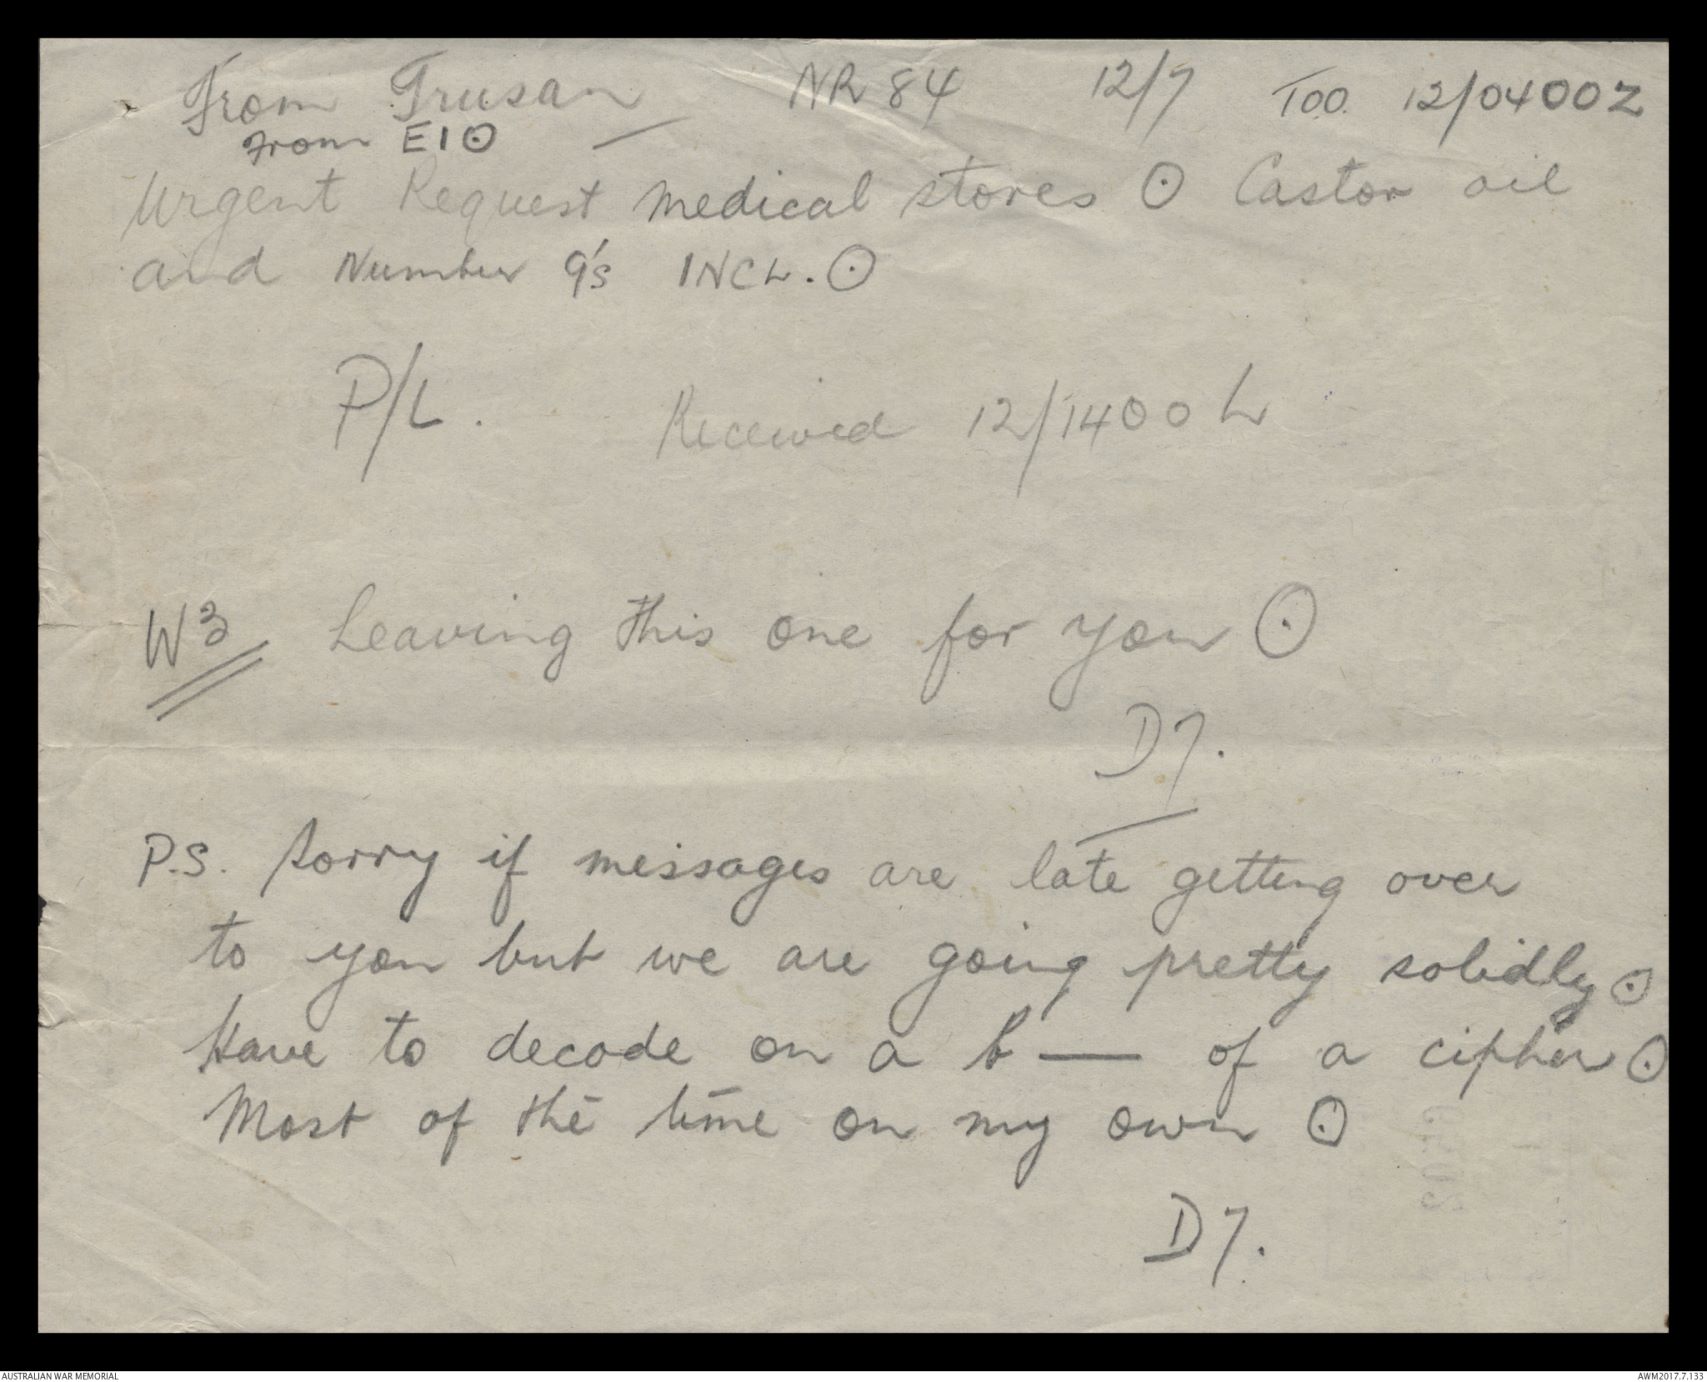 From Trusan NR 84 12/7 TOO. 12/0400Z
From E1⊙
Urgent Request medical stores ⊙ Castor oil
and Number 9's INCL. ⊙
P/L. Received 12/1400 L
W3 Leaving this one for you ⊙
D7.
P.S. Sorry if messages are late getting over
to you but we are going pretty solidly ⊙
Have to decode on a b — of a cipher ⊙
Most of the time on my own ⊙
D7.
AUSTRALIAN WAR MEMORIAL AWM2017.7.133